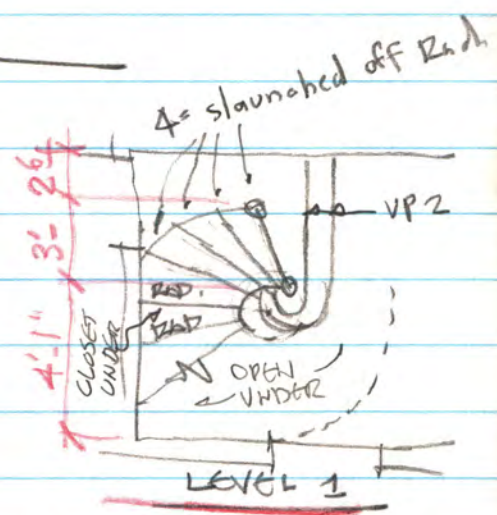 4= slaunched off Rad.
2⁶
3'-
4'-1"
VP2
RAD.
RAD
CLOSET
UNDER
OPEN
UNDER
LEVEL 1